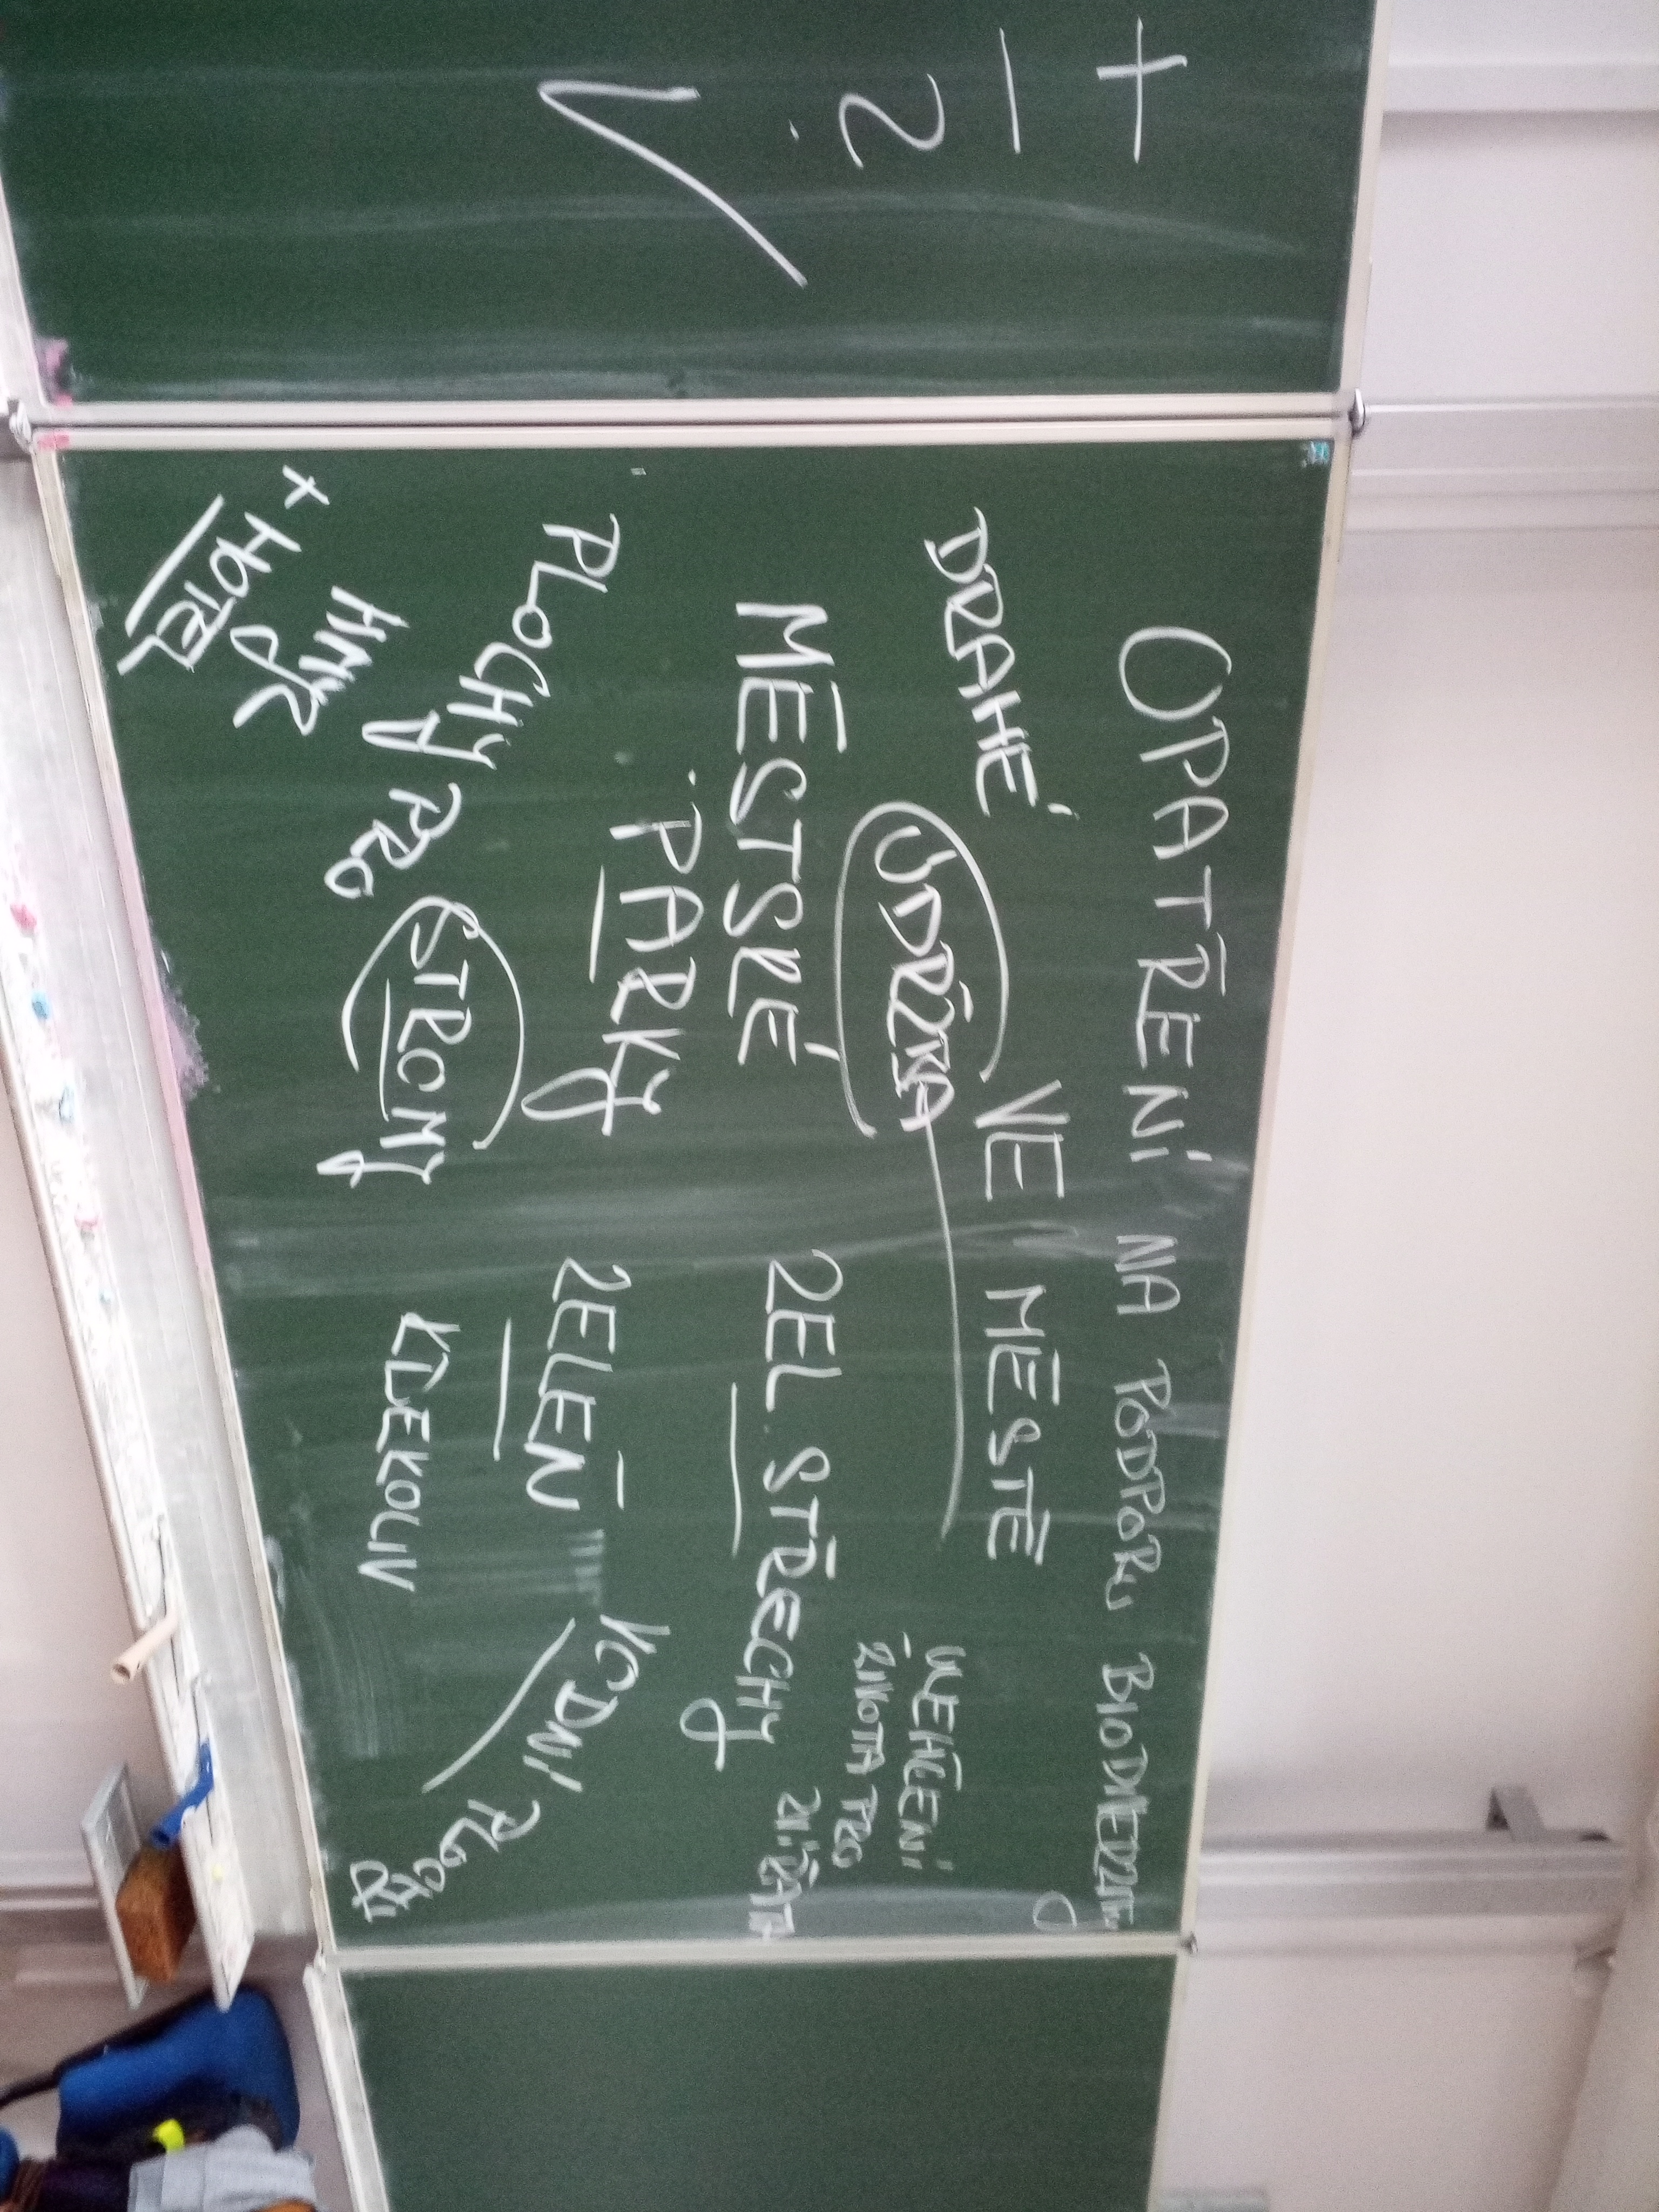 +
−
?
OPATŘENÍ NA PODPORU BIODIVERZITY
VE MĚSTĚ
DRAHÉ
ÚDRŽBA
MĚSTSKÉ
PARKY
ZEL. STŘECHY
ZELEŇ
VODNÍ PLOCHY
PLOCHY PRO
STROMY
HMYZ
+ HOTEL
PRO